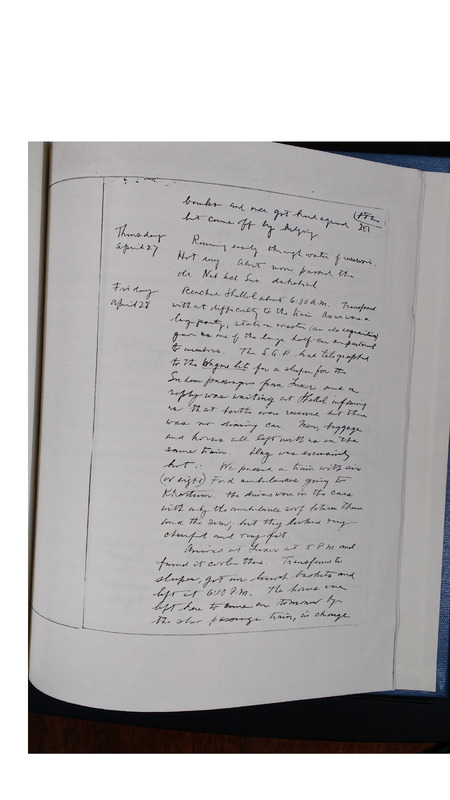 bumps and once got hard aground
but came off by kedging
Thursday
April 27
Running easily through water of reservoir.
Hot day. About noon passed the
Friday
April 28
Reached Shellal about 6:30 A.M. Transferred
without difficulty to the train. As we were a
large party, station master (an old acquaintance)
gave us one of the large half-
to ourselves. The S.G.R. had telegraphed
to the Wagons lits for a sleeper for the
Sudan passengers from Luxor and a
reply was waiting at Shellal informing
us that berths were reserved but there
was no dining car. Men, luggage
and horses all left with us on the
same train. Day was excessively
hot. We passed a train with six
(or eight) Ford ambulances going to
Khartoum. The drivers were in the cars
with only the ambulance roof between them
and the sun, but they looked very
cheerful and very fit.
Arrived at Luxor at 5 P.M. and
found it cooler there. Transferred to
sleeper, got our lunch baskets and
left at 6:10 P.M. The horses were
left here to come on tomorrow by
the slow passenger train, in charge